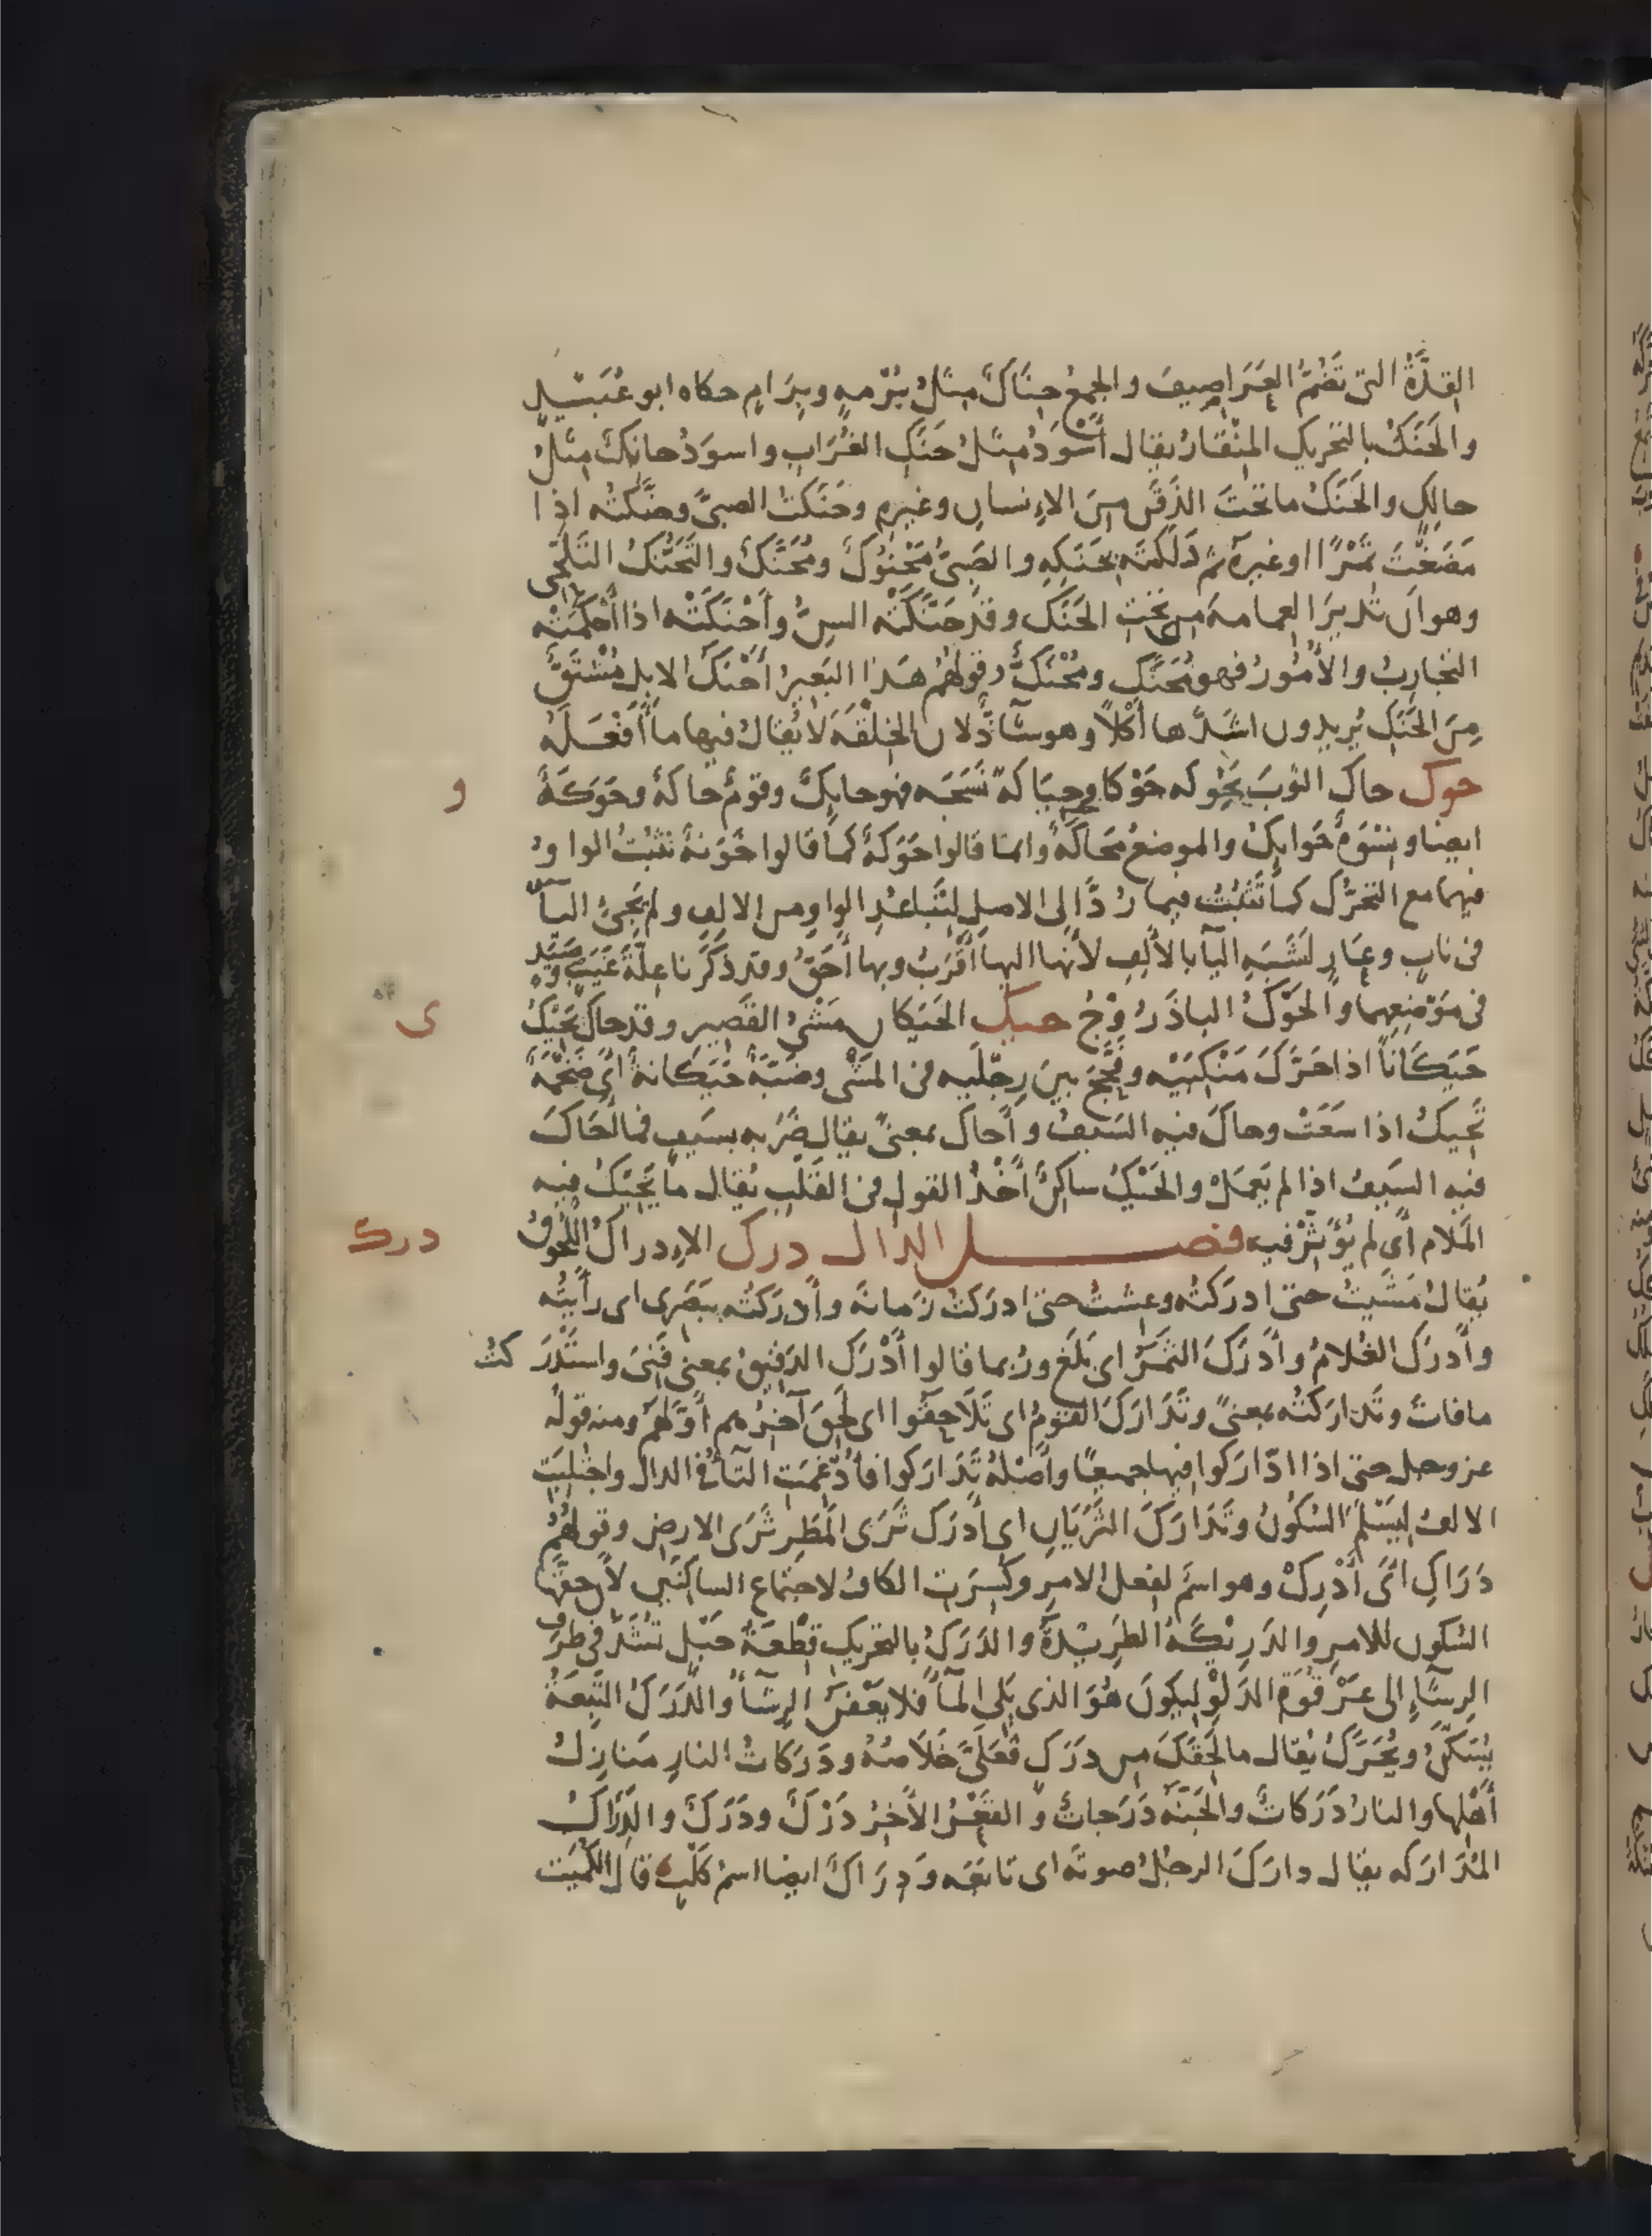 القِدَّةُ التى تَضُمُّ العَرَاصِيفَ والجمعُ حِنَاكٌ مِثلُ بُرْمهٍ وبِرَامٍ حكاه ابو عُبَيْدٍ
والحَنَكُ بالتحريك المِنْقارُ يقال أَسْوَدُ مثلُ حَنَكِ الغُرَابِ واسودُ حانِكٌ مثلُ
حالِكٍ والحَنَكُ ماتحتَ الذَقَنِ مِنَ الاِنسانِ وغيرِهِ وحَنَكتُ الصبىَّ وحنَّكتُه اذا
مَضَغْتَ تَمْرًا اوغيرَهُ ثم دَلَكتَه بحَنَكِهِ والصَبىُّ مَحْنُوكٌ ومُحَنَّكٌ والتَحَنُّكُ التَلَحِّى
وهو اَن تُديرَ العمامهَ من تحتِ الحَنَكِ وقد حَنَّكَتْه السِنُّ وأَحْنَكَتْه اذا أَحْكَمَتْه
التجاربُ والأُمُورُ فهو مُحَنَّكٌ ومُحْنَكٌ وقولهُم هَذا البَعيرُ أَحْنَكُ الابِل مُشْتَقٌّ
مِنَ الحَنَكِ يُريدون اشَدَّها أَكْلاً وهو شاذٌّ لان الخِلْقَهَ لايُقالُ فيها ما أَفْعَلَهُ
حوك حاك الثوبَ يَحُوكه حَوْكا وحِيَاكةً نَسَجَه فهو حايِكٌ وقومٌ حاكَةٌ وحَوَكَةٌ
و
ايضا ونِسْوَهٌ حَوايِكُ والموضعُ مَحَاكَةٌ وانما قالوا حَوَكَةٌ كما قالوا خَوَنةٌ تثبُتُ الواوُ
فيهما مع التحرُّك كما تَثْبُتُ فيما رُدَّ الى الاصلِ لِتَباعُدِ الواوِ من الالِفِ ولم تَجِئِ اليآ
فى نابٍ وعارٍ لشَبَهِ اليآ بالألِفِ لأنها اليها أَقْرَبُ وبها أحَقُّ وقد ذكرنا عِلّةَ غَيَبٍ وصَيَدٍ
فى مَوْضِعِهما والحَوْكُ الباذَرُوْجُ حيك الحَيَكان مَشْىُ القَصِيرِ وقد حاك يَحِيْكُ
ى
حَيَكَاناً اذا حَرَّكَ مَنْكِبَيْه وفَحَّجَ بين رِجْلَيه فى المَشْى وضَبّةٌ حَيَكانةٌ أى ضَخْمَةٌ
تَحِيكُ اذا سَعَتْ وحاكَ فيه السَيفُ وأَحاكَ بمعنىً يقال ضَرَبه بسَيفٍ فمالحَاكَ
فيه السَيفُ اذا لم يَعمَلْ والحَيْكُ ساكِنٌ أَخْذُ القولِ فى القَلْبِ يُقال ما يَحِيْكُ فيه
المَلام أَى لم يُؤَثِّرْ فيه فصل الدال درك الاِدراكُ اللُحُوقُ
درك
يُقالُ مَشَيتُ حتى ادركتُه وعِشتُ حتى ادركتُ زَمانَه وأدركتُه ببَصَرِى اى رأيتُه
وأَدرَكَ الغُلامُ وأَدركَ الثَمَرُ اى بَلَغ ورُبما قالوا أَدْرَك الدَقِيقُ بمعنى فَنِىَ واستَدْرَكتُ
مافاتَ وتَدارَكتُه بمعنىً وتَدَارَكَ القومُ اى تَلاحَقُوا اى لَحِقَ آخِرُهم أَوّلَهُم ومنه قولُه
عز وجل حتى اذا ادّارَكوا فيها جميعًا وأَصْلهُ تَدَارَكوا فأُدْغِمَتِ التآءُ فى الدال واجتُلِبَتِ
الالفُ لِيَسْلَمَ السُكُونُ وتَدَارَكَ الثَرَيَانِ اى أَدرَكَ ثَرَى المَطَرِ ثَرَى الارضِ وقولهُمُ
دَرَاكِ اىْ أَدْرِكْ وهو اسمٌ لفعل الامرِ وكُسِرَت الكافُ لاجتماع الساكنَينِ لأن حقَّها
السُكون للامرِ والدَرِيْكَةُ الطَرِيدَةُ والدَرَكُ بالتحريكِ قِطْعَةُ حَبْلٍ تُشَدُّ فى طَرَفِ
الرِشَآءِ الى عَرْقُوَةِ الدَلْوِ ليكونَ هُوَ الذى يَلى المآءَ فلا يَعْفَنُ الرِشَآءُ والدَرَكُ التَبِعَةُ
يُسَكَّنُ ويُحَرَّكُ يُقال مالَحِقَكَ من دَرَكٍ فَعَلَىَّ خَلاَصُهُ ودَرَكاتُ النارِ مَنازِلُ
أَهْلِها والنارُ دَرَكاتٌ والجَنّه دَرَجاتٌ والقَعْرُ الآخِرُ دَرْكٌ ودَرَكٌ والدِّرَاكُ
المُدَارَكه يقال دارَكَ الرجلُ صوتَه اى تابَعَه ودِرَاكٌ ايضا اسمُ كلبٍ قال الكُمَيت